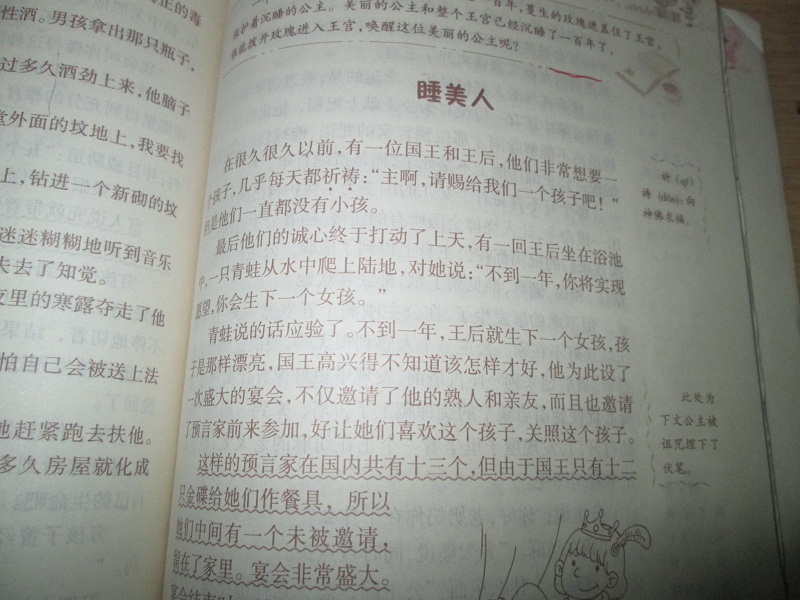 正的毒
性酒。男孩拿出那只瓶子,
过多久酒劲上来,他脑子
堂外面的坟地上,我要找
上,钻进一个新砌的坟
迷迷糊糊地听到音乐
失去了知觉。
夜里的寒露夺走了他
怕自己会被送上法
他赶紧跑去扶他。
多久房屋就化成
一百年,蔓生的玫瑰遮盖住了王宫,
保护着沉睡的公主。美丽的公主和整个王宫已经沉睡了一百年了,
谁能拨开玫瑰进入王宫,唤醒这位美丽的公主呢?
睡美人
在很久很久以前,有一位国王和王后,他们非常想要一
个孩子,几乎每天都祈祷:“主啊,请赐给我们一个孩子吧!”
但是他们一直都没有小孩。
最后他们的诚心终于打动了上天,有一回王后坐在浴池
中,一只青蛙从水中爬上陆地,对她说:“不到一年,你将实现
愿望,你会生下一个女孩。”
青蛙说的话应验了。不到一年,王后就生下一个女孩,孩
子是那样漂亮,国王高兴得不知道该怎样才好,他为此设了
一次盛大的宴会,不仅邀请了他的熟人和亲友,而且也邀请
了预言家前来参加,好让她们喜欢这个孩子,关照这个孩子。
这样的预言家在国内共有十三个,但由于国王只有十二
只金碟给她们作餐具,所以
她们中间有一个未被邀请,
留在了家里。宴会非常盛大。
宴会结束时
祈(qí)
祷(dǎo):向
神佛求福。
此处为
下文公主被
诅咒埋下了
伏笔。